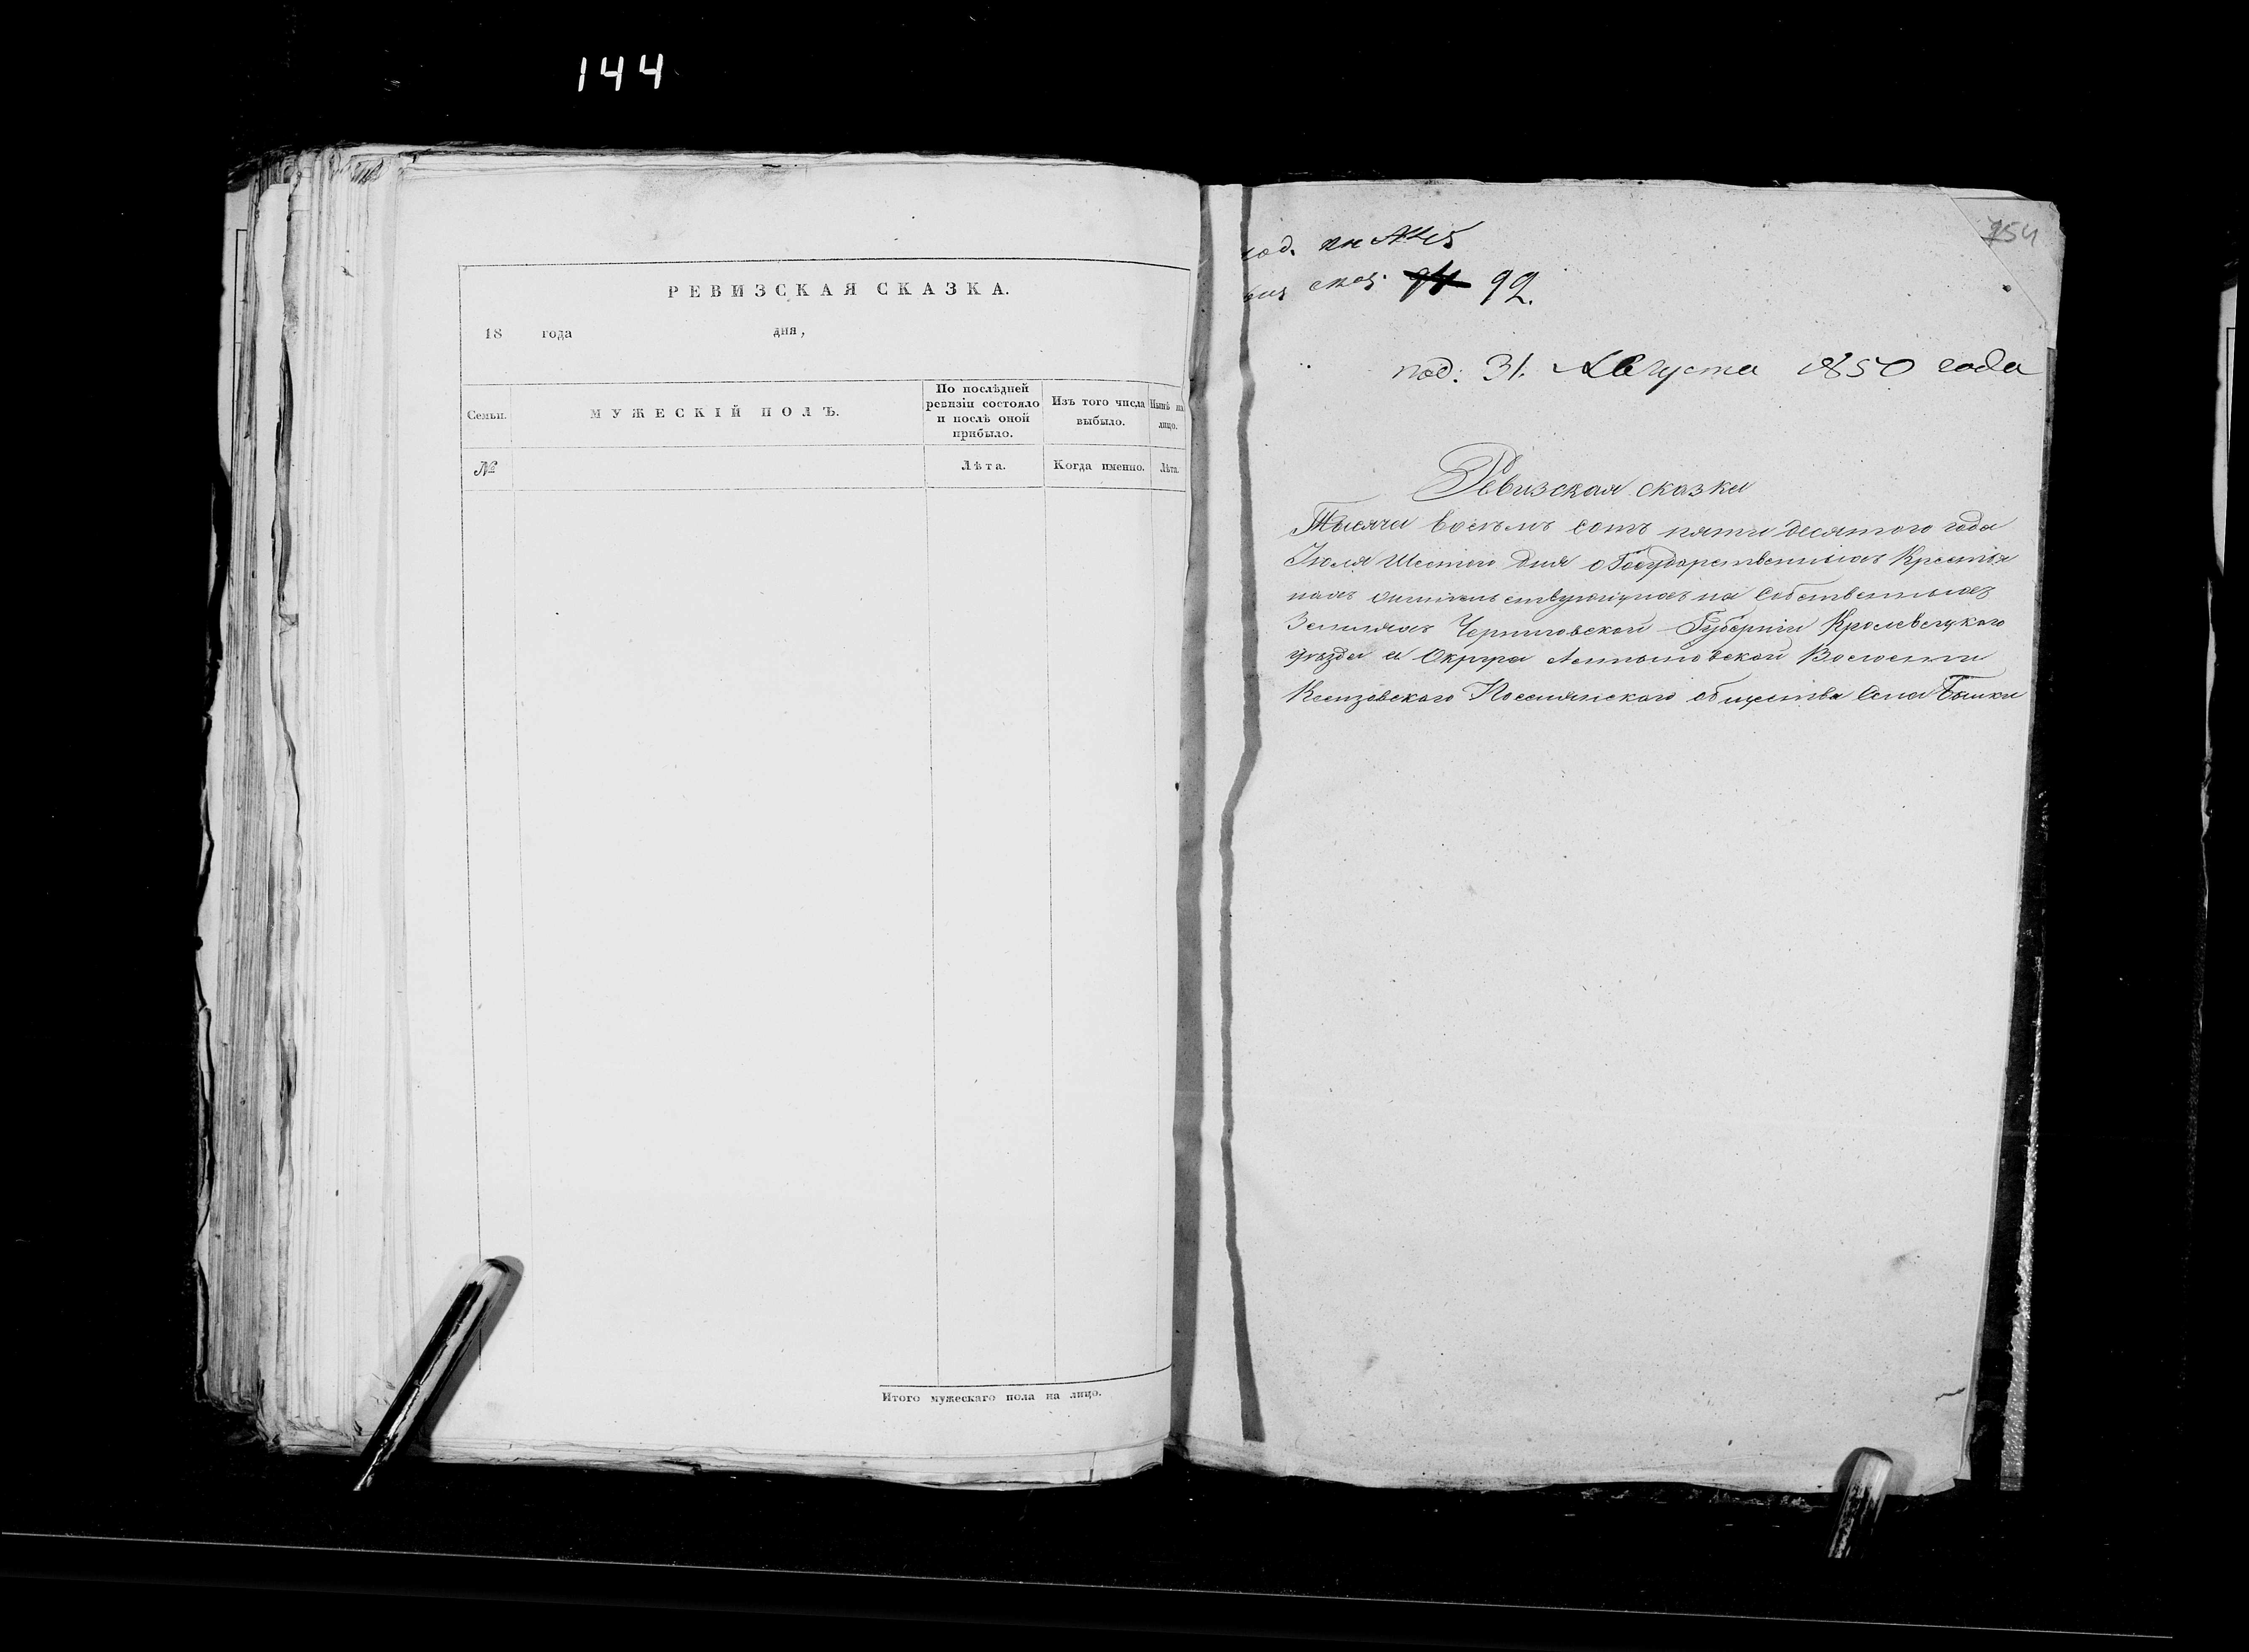 144
РЕВИЗСКАЯ СКАЗКА.
18 года дня,
Семьи.
МУЖЕСКІЙ ПОЛЪ.
По послѣдней
ревизіи состояло
и послѣ оной
прибыло.
Изъ того числа
выбыло.
Нынѣ на
лицо.
№
Лѣта.
Когда именно.
Лѣта.
Итого мужескаго пола на лицо.
754
под. кн №
сказ. 92.
под: 31. Августа 1850 года
Ревизская сказка
Тысяча восемь сотъ пяти десятого года
Іюля Шестого дня о Государственныхъ Крестья
нахъ жительствующихъ на Собственныхъ
Земляхъ Черниговской Губерніи Кролевецкого
уѣзда и Округа Волости
общества Села